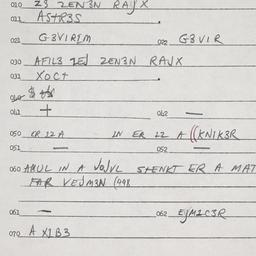 010 Z3 ZEN3N RAJX
011 ASTR3S
021 G3VIRIM 022 G3VIR
030 AFIL3 ZEN3N RAJX
031 XOCT
041 + 042 —
050 ER 12 A IN ER 22 A (KNIK3R
051 — 052 —
060 AMUL IN A VOJVL STENKT ER A MAT
FAR VEJM3N (448
061 — 062 EJM2C3R
070 A XIB3